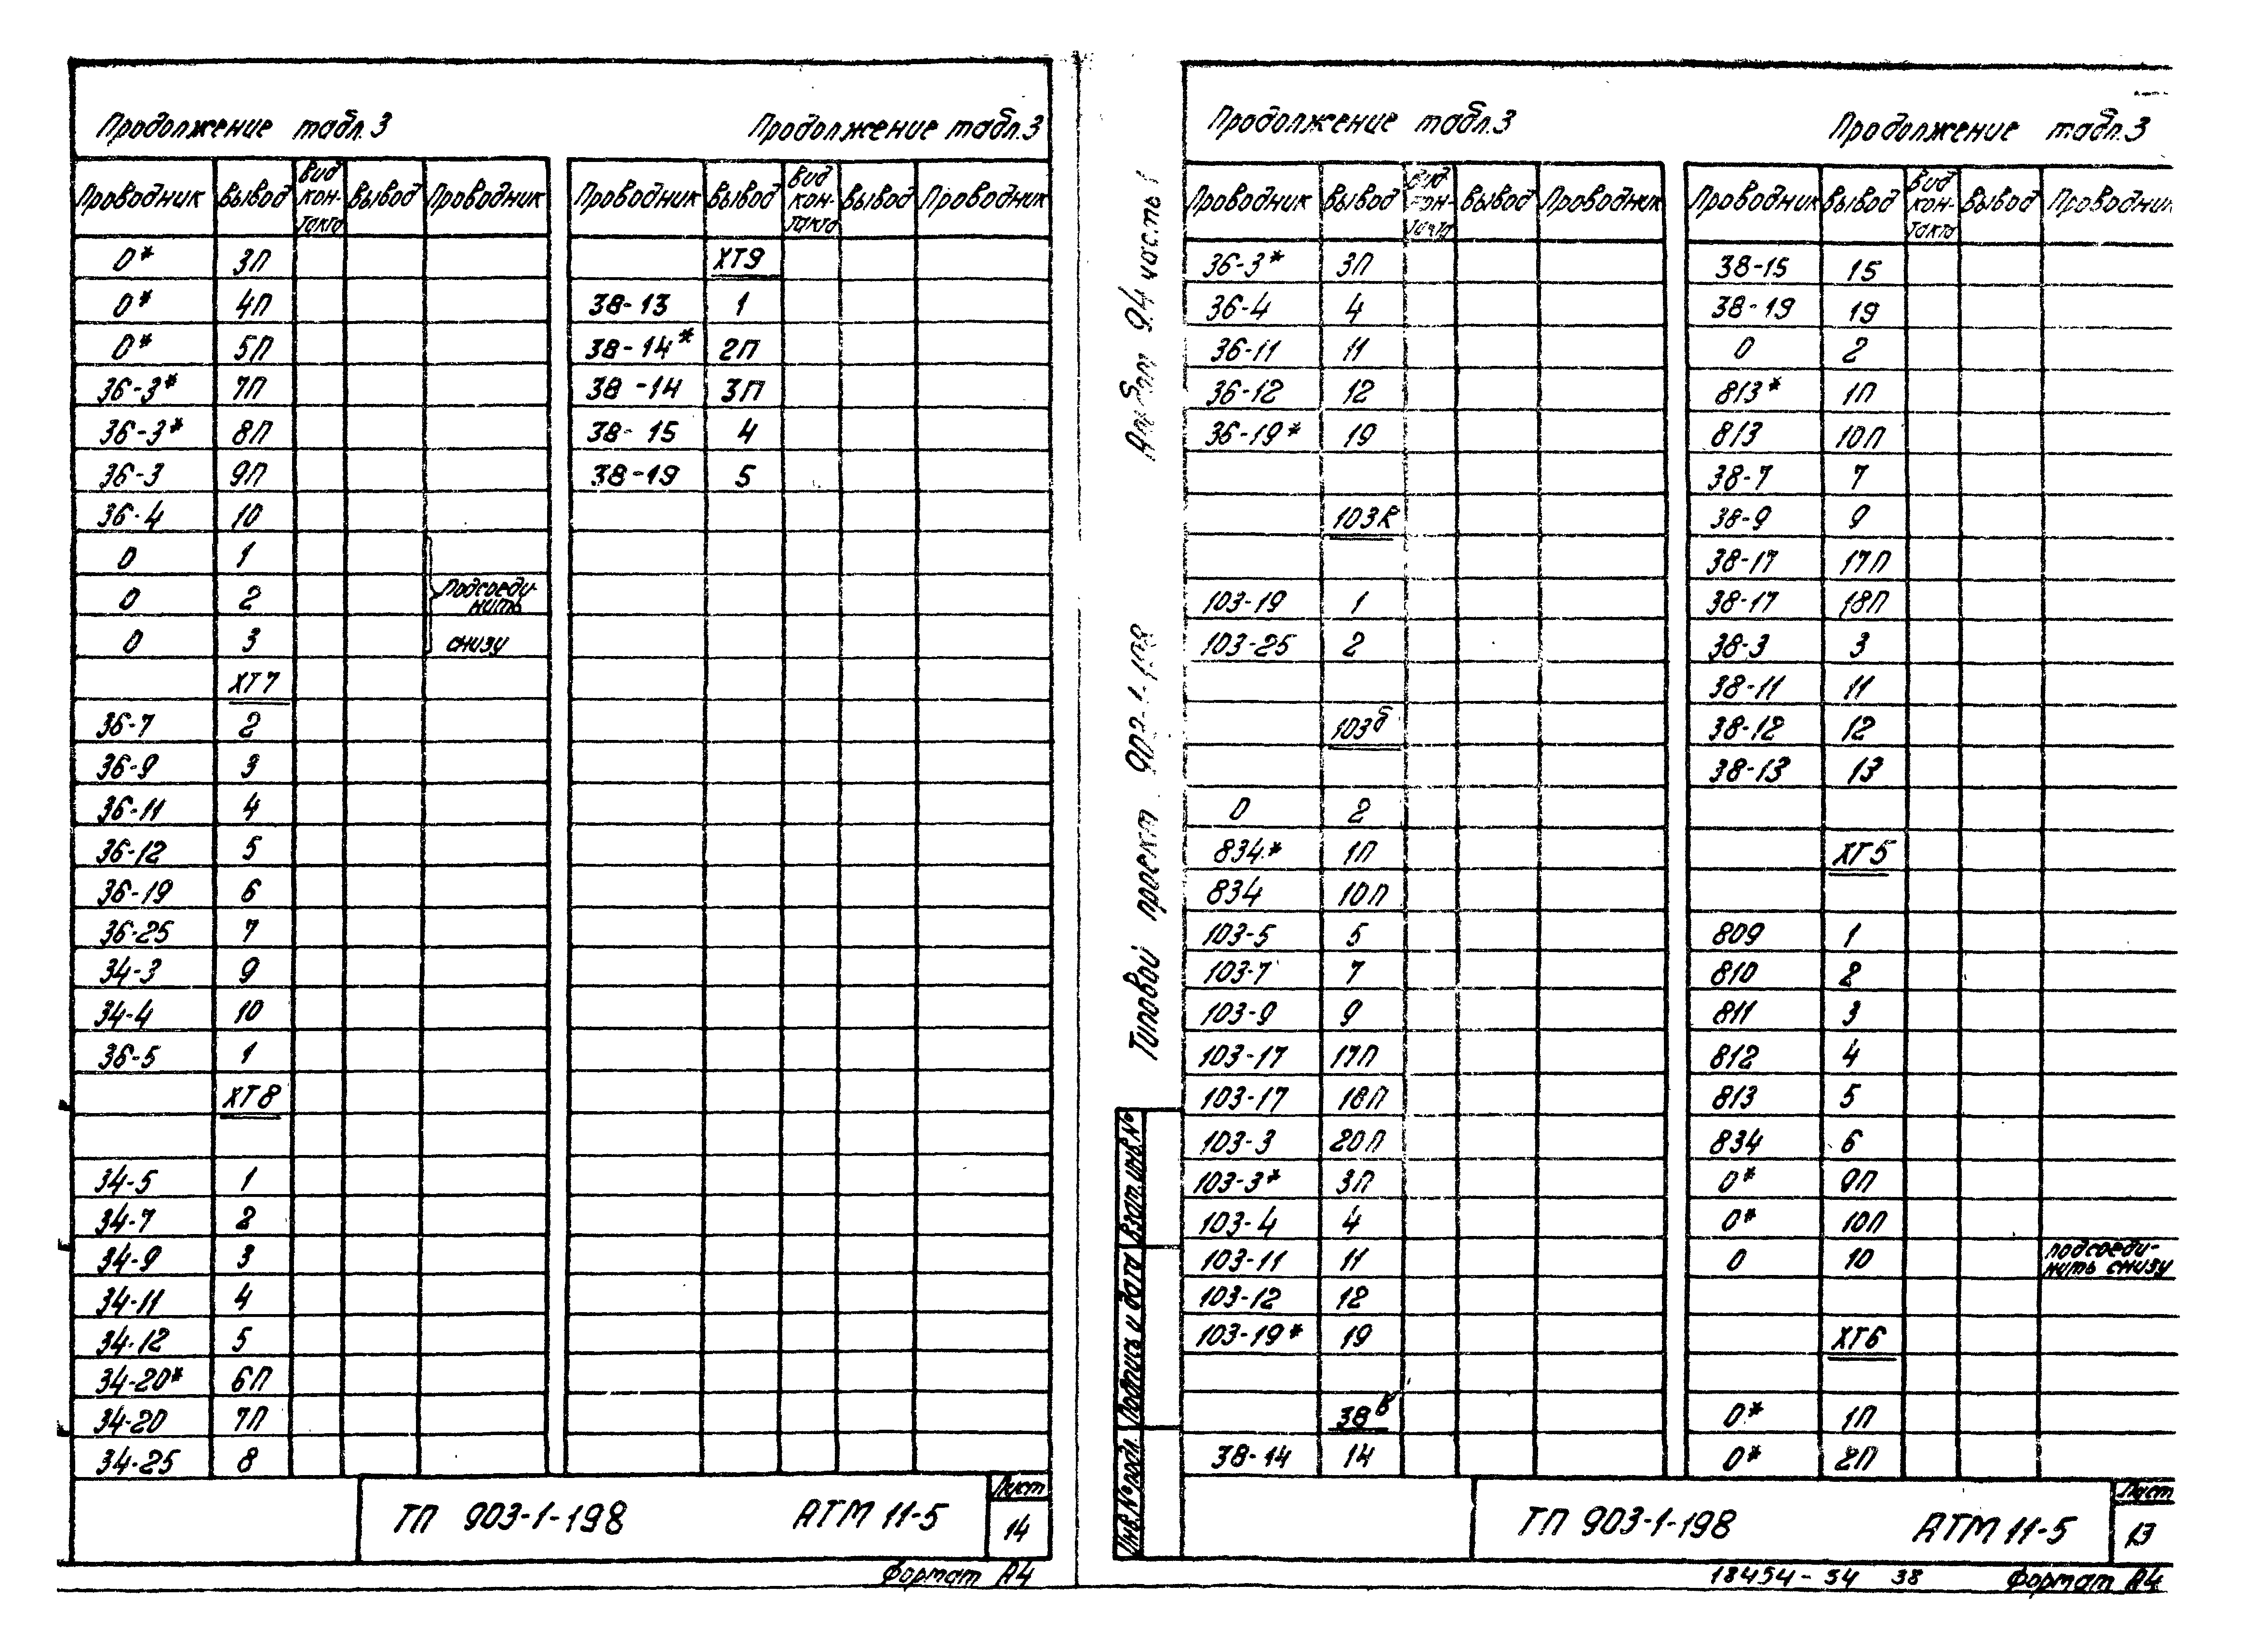 Продолжение табл.3
Проводник Вывод Вид кон- такта Вывод Проводник
0* 3П
0* 4П
0* 5П
36-3* 7П
36-3* 8П
36-3 9П
36-4 10
0 1
0 2 Подсоеди-
нить
0 3 снизу
ХТ7
36-7 2
36-9 3
36-11 4
36-12 5
36-19 6
36-25 7
34-3 9
34-4 10
36-5 1
ХТ8
34-5 1
34-7 2
34-9 3
34-11 4
34-12 5
34-20* 6П
34-20 7П
34-25 8
Продолжение табл.3
Проводник Вывод Вид кон- такта Вывод Проводник
ХТ9
38-13 1
38-14* 2П
38-14 3П
38-15 4
38-19 5
ТП 903-1-198 АТМ 11-5
Лист
14
Формат А4
Альбом 9.4 часть 1
Типовой проект 903-1-198
Взам. инв. №
Подпись и дата
Инв. № подл.
Продолжение табл.3
Проводник Вывод Вид кон- такта Вывод Проводник
36-3* 3П
36-4 4
36-11 11
36-12 12
36-19* 19
103К
103-19 1
103-25 2
103б
0 2
834* 1П
834 10П
103-5 5
103-7 7
103-9 9
103-17 17П
103-17 18П
103-3 20П
103-3* 3П
103-4 4
103-11 11
103-12 12
103-19* 19
38в
38-14 14
Продолжение табл.3
Проводник Вывод Вид кон- такта Вывод Проводник
38-15 15
38-19 19
0 2
813* 1П
813 10П
38-7 7
38-9 9
38-17 17П
38-17 18П
38-3 3
38-11 11
38-12 12
38-13 13
ХТ5
809 1
810 2
811 3
812 4
813 5
834 6
0* 9П
0* 10П
0 10 подсоеди-
нить снизу
ХТ6
0* 1П
0* 2П
ТП 903-1-198 АТМ 11-5
Лист
13
18454-34 38 Формат А4